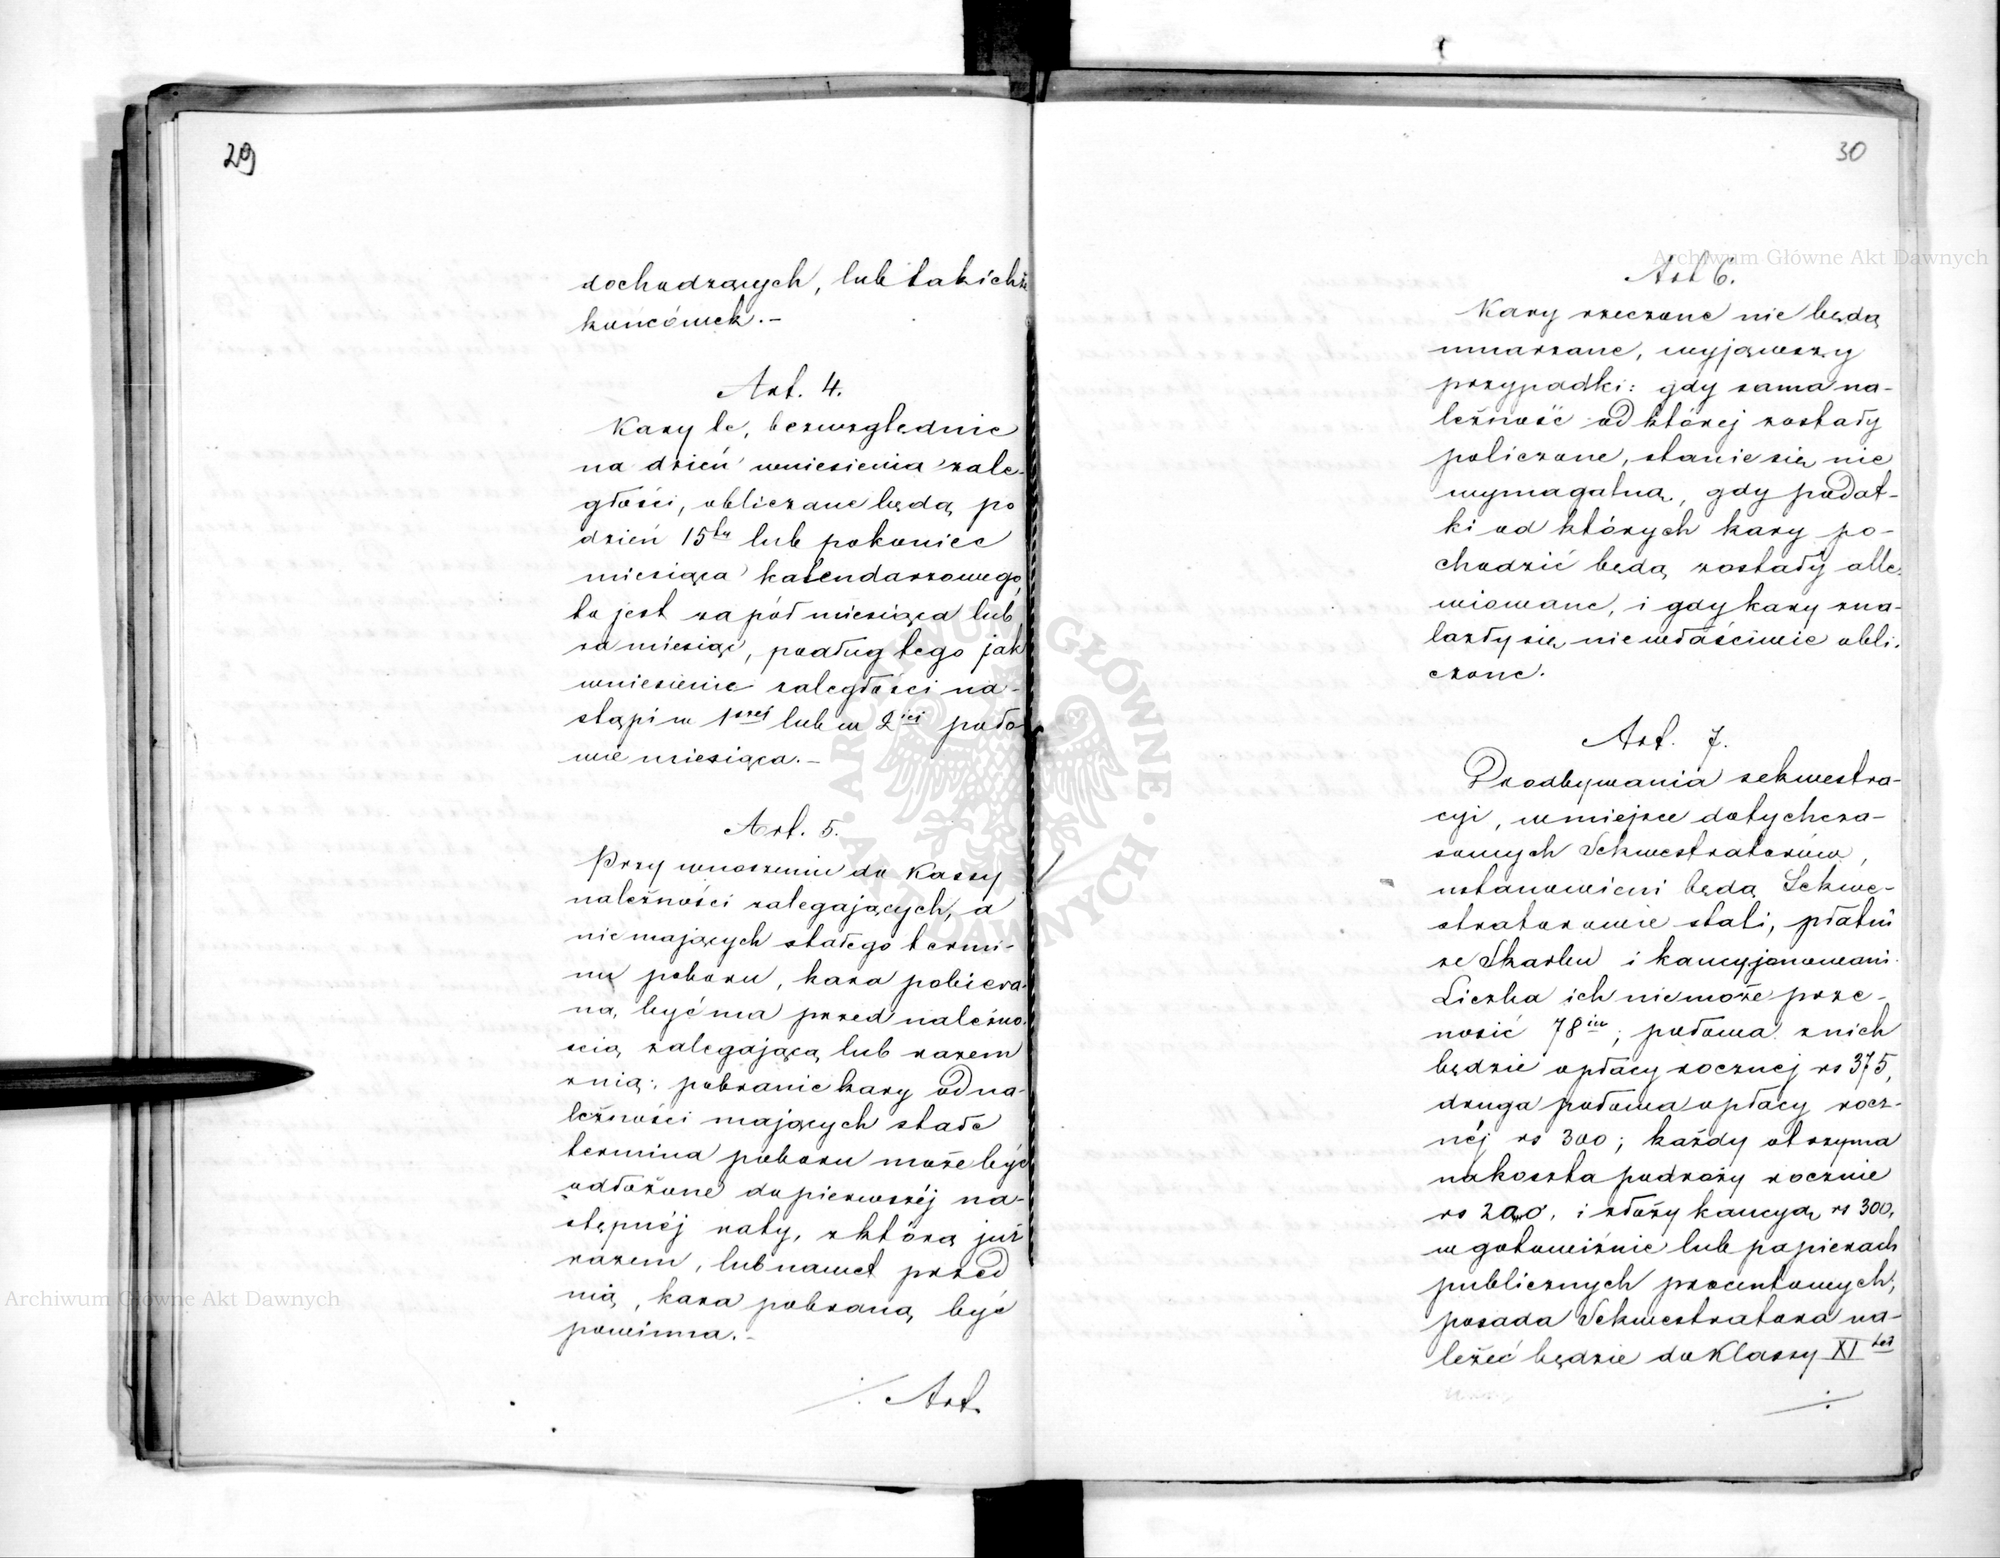 29
dochodzących, lub takichże
końcówek.-
Art. 4.
Kary te, bezwzględnie
na dzień wniesienia zale-
głości, obliczane będą po
dzień 15ty lub po koniec
miesiąca kalendarzowego,
to jest za pół miesiąca lub
za miesiąc, podług tego jak
wniesienie zaległości na-
stąpi w 1széj lub w 2iéj poło-
wie miesiąca.-
Art. 5.
Przy wnoszeniu do Kassy
należności zalegających, a
nie mających stałego termi-
nu poboru, kara pobiera-
ną być ma przed należno-
scią zalegającą lub razem
z nią; pobranie kary od na-
leżności mających stałe
termina poboru może być
odłożone do pierwszéj na-
stępnéj raty, z którą już
razem, lub nawet przed
nią, kara pobraną być
powinna.-
./. Art.
30
Art 6.
Kary rzeczone nie będą
umarzane, wyjąwszy
przypadki: gdy sama na-
leżność od której zostały
policzone, stanie się nie
wymagalną, gdy podat-
ki od których kary po-
chodzić będą zostały alle-
wiowane, i gdy kary zna-
lazły się niewłaściwie obli-
czone.
Art. 7.
Do odbywania sekwestra-
cyi, w miejsce dotychcza-
sowych Sekwestratorów,
ustanowieni będą Sekwe-
stratorowie stali, płatni
ze Skarbu i kaucyjonowani.
Liczba ich nie może prze-
nosić 78iu; połowa z nich
będzie o płacy rocznéj rs 375,
druga połowa o płacy rocz-
néj rs 300; każdy otrzyma
na koszta podróży rocznie
rs 200. i złoży kaucyą rs 300,
w gotowiźnie lub papierach
publicznych procentowych;
posada Sekwestratora na-
leżeć będzie do Klassy XI téj
./.
Archiwum Główne Akt Dawnych
Archiwum Główne Akt Dawnych
ARCHIWUM GŁÓWNE AKT DAWNYCH